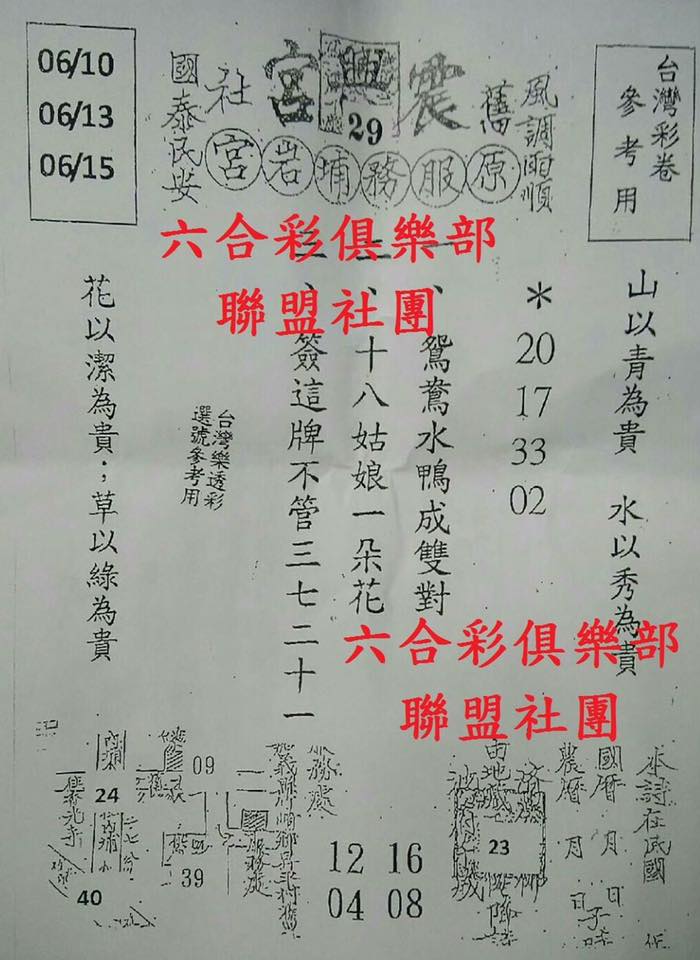 台灣彩卷
參考用
風調雨順
舊
震興宮
29
社
國泰民安
原服務埔岩宮
06/10
06/13
06/15
六合彩俱樂部
聯盟社團
山以青為貴 水以秀為貴
*
20
17
33
02
一、鴛鴦水鴨成雙對
二、十八姑娘一朵花
三、簽這牌不管三七二十一
台灣樂透彩
選號參考用
花以潔為貴；草以綠為貴
六合彩俱樂部
聯盟社團
本詩在民國
國曆 月 日
農曆 月 日子時
23
12 16
04 08
服務處
09
39
24
40